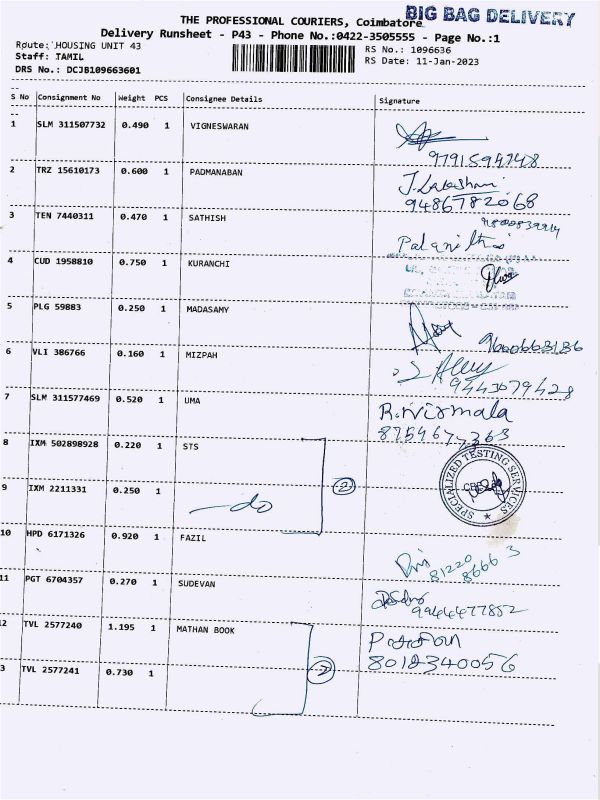 BIG BAG DELIVERY
THE PROFESSIONAL COURIERS, Coimbatore
Delivery Runsheet - P43 - Phone No.:0422-3505555 - Page No.:1
Route: HOUSING UNIT 43
RS No.: 1096636
Staff: TAMIL
RS Date: 11-Jan-2023
DRS No.: DCJB109663601
S No Consignment No Weight PCS Consignee Details Signature
1 SLM 311507732 0.490 1 VIGNESWARAN
9791594748
2 TRZ 15610173 0.600 1 PADMANABAN
9486782068
3 TEN 7440311 0.470 1 SATHISH
4 CUD 1958810 0.750 1 KURANCHI
5 PLG 59883 0.250 1 MADASAMY
9600663136
6 VLI 386766 0.160 1 MIZPAH
9443079428
7 SLM 311577469 0.520 1 UMA
R. Nirmala
8754677363
8 IXM 502898928 0.220 1 STS
SPECIALIZED TESTING SERVICES
9 IXM 2211331 0.250 1 — do 2
10 HPD 6171326 0.920 1 FAZIL
81220
86663
11 PGT 6704357 0.270 1 SUDEVAN
9944477852
12 TVL 2577240 1.195 1 MATHAN BOOK
8012340056
3 TVL 2577241 0.730 1 2